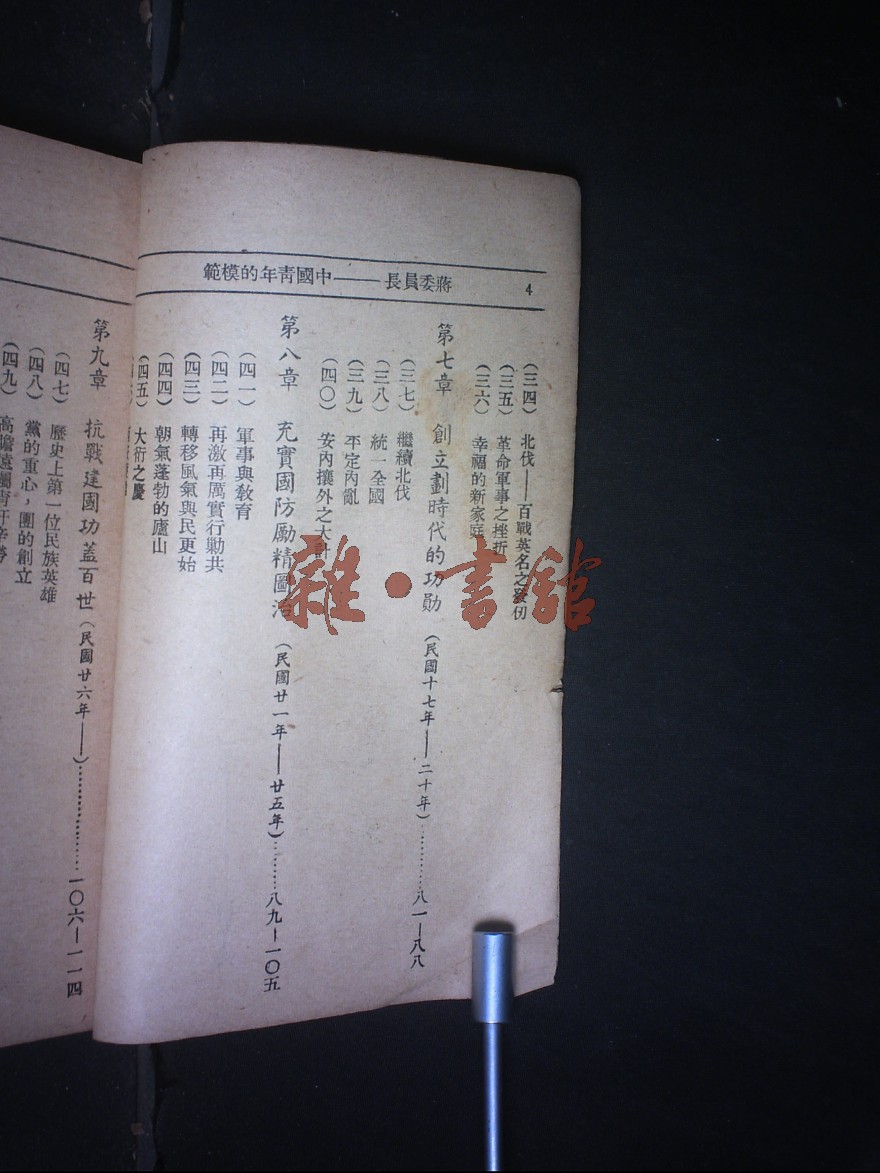 4
蔣委員長———中國靑年的模範
(三四) 北伐——百戰英名之發仞
(三五) 革命軍事之挫折
(三六) 幸福的新家庭
第七章 創立劃時代的功勛 (民國十七年——二十年)…………八一—八八
(三七) 繼續北伐
(三八) 統一全國
(三九) 平定內亂
(四〇) 安內攘外之大計
第八章 充實國防勵精圖治 (民國廿一年——廿五年)………八九—一〇五
(四一) 軍事與敎育
(四二) 再激再厲實行勦共
(四三) 轉移風氣與民更始
(四四) 朝氣蓬勃的廬山
(四五) 大衍之慶
第九章 抗戰建國功蓋百世 (民國廿六年——)……………一〇六—一一四
(四七) 歷史上第一位民族英雄
(四八) 黨的重心,團的創立
(四九) 高瞻遠矚
雜·書館